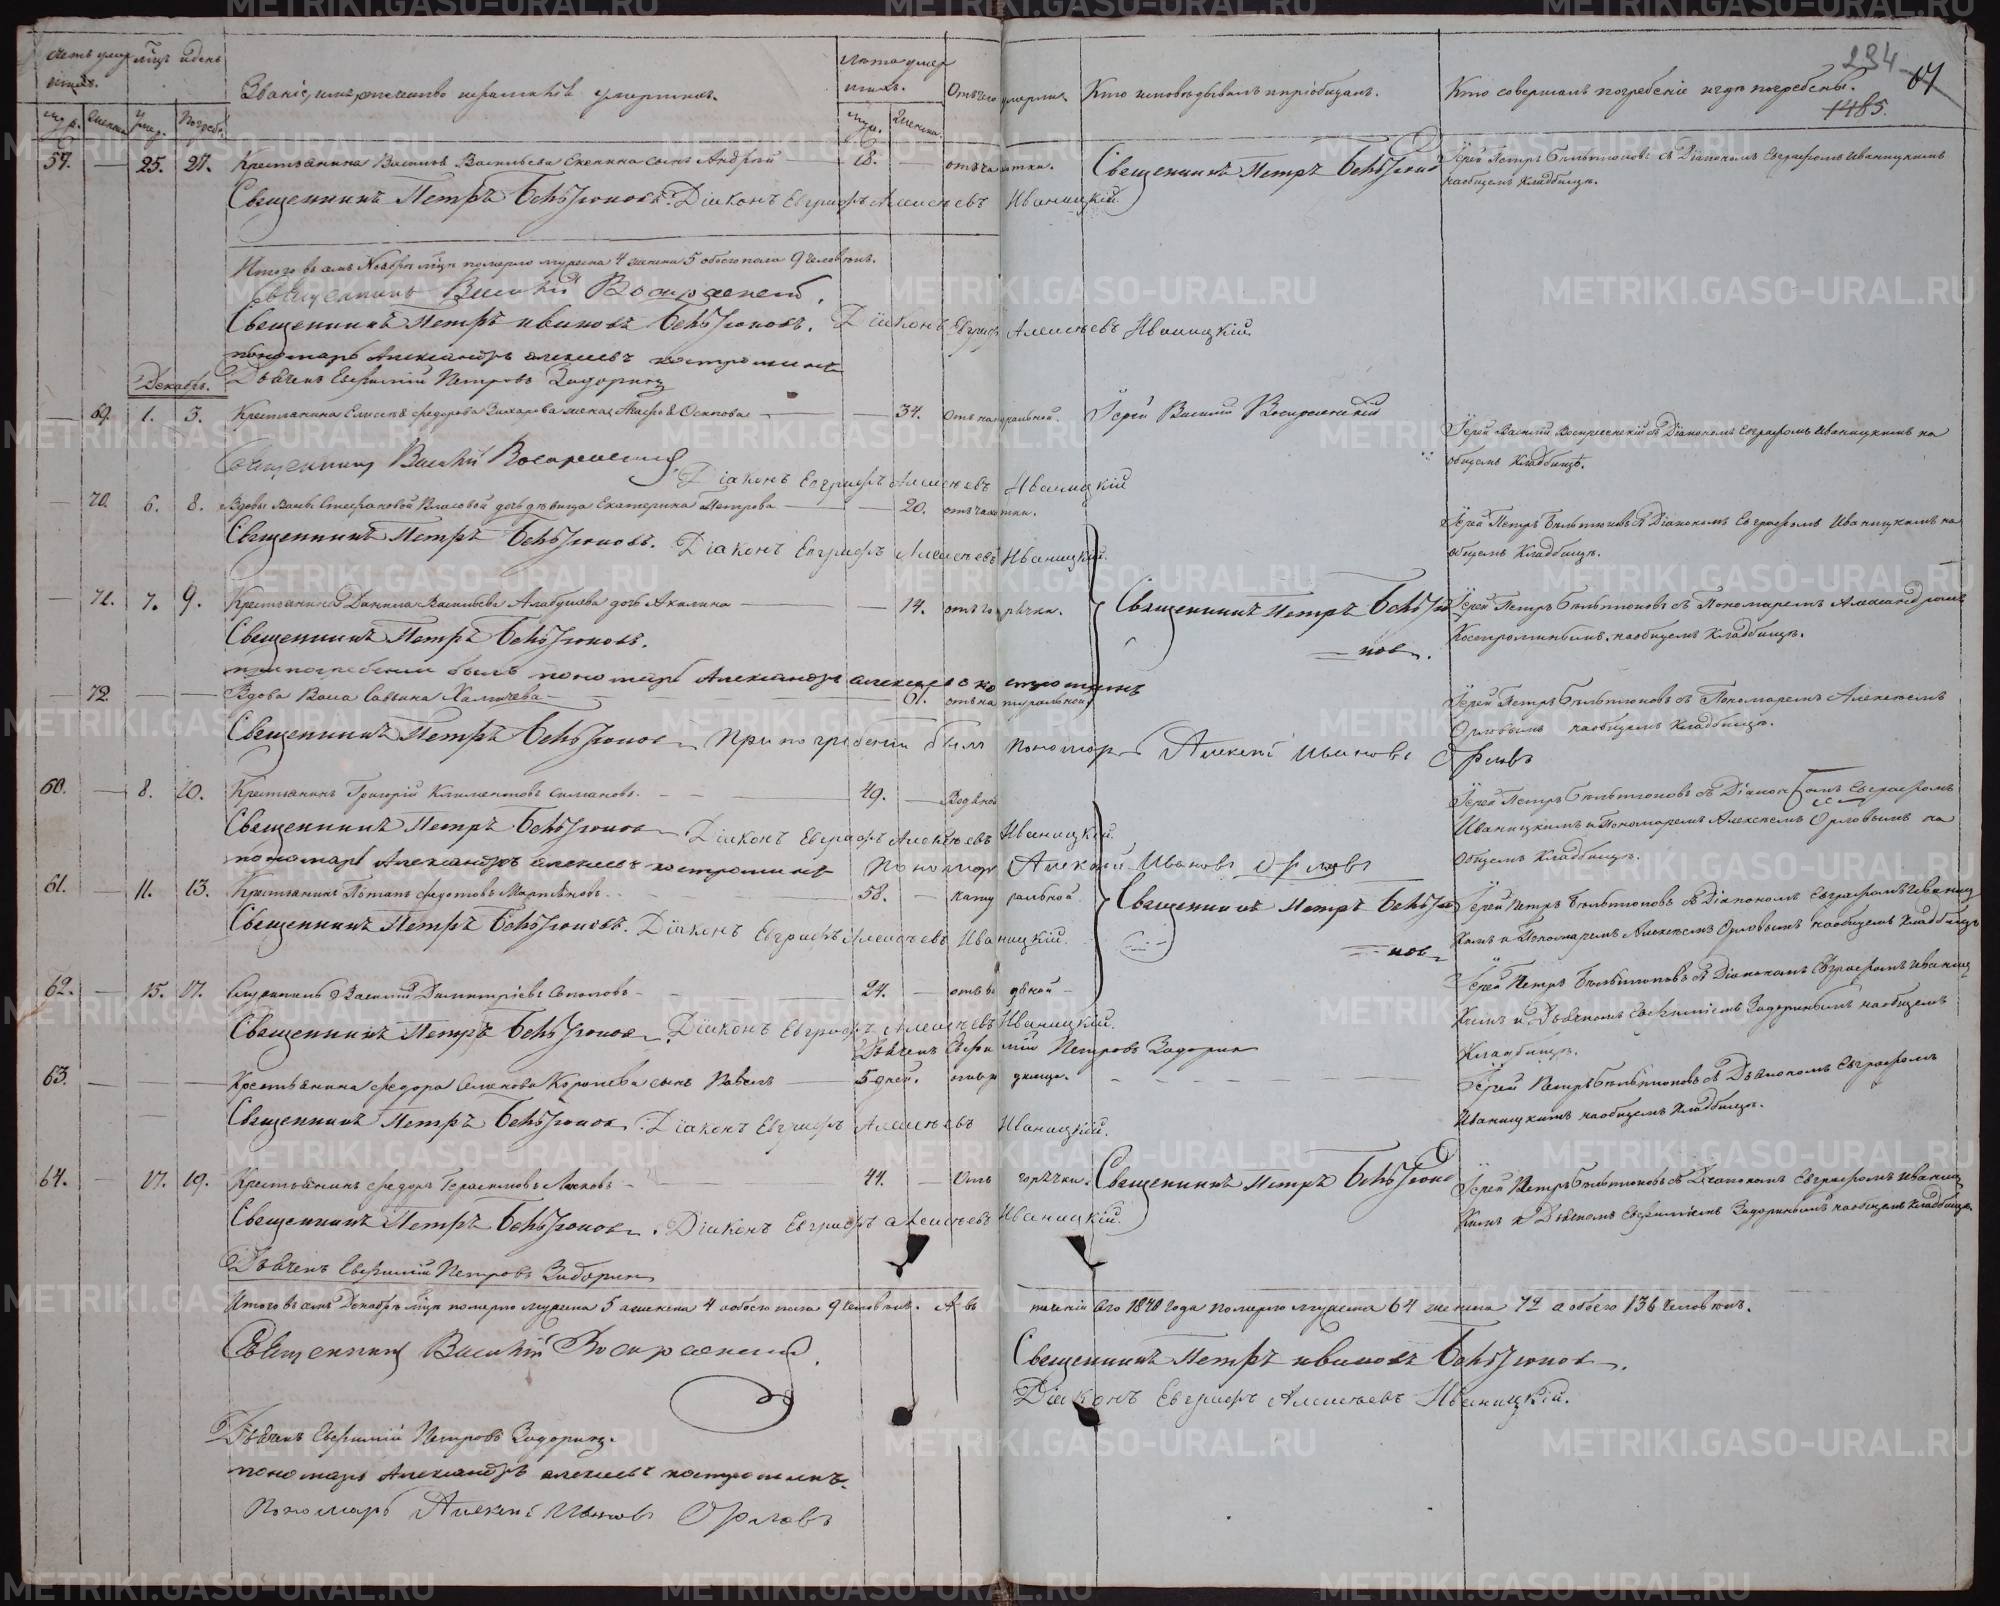 Счетъ умер
шихъ.
Мѣсяцъ и день
Званіе, имя, отчество и фамилія умершихъ.
Лета умер
шихъ.
Отъ чего умерли.
Кто исповѣдывалъ и пріобщалъ.
Кто совершалъ погребеніе и гдѣ погребены.
234
67
1485.
Муж.
Женск.
Умер.
Погреб.
Муж.
Женск.
57. — 25. 27. Крестьянина Василья Васильева сынъ Андрей — 18. — отъ чахотки. Священникъ Петръ Бѣльтюков Іерей Петръ Бѣльтюковъ съ Діакономъ Евграфомъ Иваницкимъ
на общемъ кладбищѣ.
Священникъ Петръ Бѣльтюковъ. Діаконъ Евграфъ Алексѣевъ Иваницкій
Итого въ семъ Ноябрѣ мцѣ померло мужеска 4 женска 5 обоего пола 9 человѣкъ.
Священникъ Василій Воскресенскій.
Священникъ Петръ Ивановъ Бѣльтюковъ. Діаконъ Евграфъ Алексѣевъ Иваницкій.
пономарь Александръ Алексѣевъ Костроминъ
Декабрь.
Дьячекъ Евфимій Петровъ Задоринъ
— 69. 1. 3. Крестьянина Елисея Федорова Захарова жена Осипова — — 34. Отъ натуральной. Іерей Василій Воскресенскій
Іерей Василій Воскресенскій съ Діакономъ Евграфомъ Иваницкимъ на
общемъ кладбищѣ.
Священникъ Василій Воскресенскій. Діаконъ Евграфъ Алексѣевъ Иваницкій
— 70. 6. 8. Вдовы Стефановой Власовой дочь дѣвица Екатерина Петрова — — 20. отъ чахотки.
Іерей Петръ Бѣльтюковъ съ Діакономъ Евграфомъ Иваницкимъ на
общемъ кладбищѣ.
Священникъ Петръ Бѣльтюковъ. Діаконъ Евграфъ Алексѣевъ Иваницкій.
— 71. 7. 9. Крестьянина Данила Васильева дочь Акилина — — 14. отъ горячки. Священникъ Петръ Бѣльтю
ков. Іерей Петръ Бѣльтюковъ съ Пономаремъ Александромъ
Костроминымъ на общемъ кладбищѣ.
Священникъ Петръ Бѣльтюковъ.
при погребеніи былъ пономарь Александръ Алексѣевъ Костроминъ
— 72. — — Вдова Васа Савина — 61. отъ натуральной
Іерей Петръ Бѣльтюковъ съ Пономаремъ Алексѣемъ
Орловымъ на общемъ кладбищѣ.
Священникъ Петръ Бѣльтюков При погребеніи былъ пономарь Алексей Ивановъ Орловъ
60. — 8. 10. Крестьянинъ Григорій Климентовъ Симановъ. — 49. — Водяной
Іерей Петръ Бѣльтюковъ съ Діакономъ Евграфомъ
Иваницкимъ и Пономаремъ Алексѣемъ Орловымъ на
общемъ кладбищѣ.
Священникъ Петръ Бѣльтюков Діаконъ Евграфъ Алексѣевъ Иваницкій.
пономарь Александръ Алексѣевъ Костроминъ Пономарь Алексей Ивановъ Орловъ
61. — 11. 13. Крестьянинъ Потапъ Федотовъ — 58. — натуральной. Священникъ Петръ Бѣльтю
ков Іерей Петръ Бѣльтюковъ съ Діакономъ Евграфомъ Иваниц
кимъ и Пономаремъ Алексѣемъ Орловымъ на общемъ кладбищѣ
Священникъ Петръ Бѣльтюковъ. Діаконъ Евграфъ Алексѣевъ Иваницкій.
62. — 15. 17. Василій Димитріевъ Соколовъ — 24. — отъ водяной —
Іерей Петръ Бѣльтюковъ съ Діакономъ Евграфомъ Иваниц
кимъ и Дьячкомъ Евфиміемъ Задоринымъ на общемъ
кладбищѣ.
Священникъ Петръ Бѣльтюков. Діаконъ Евграфъ Алексѣевъ Иваницкій.
Дьячекъ Евфимій Петровъ Задорин
63. — — — Крестьянина Федора Семенова сынъ Павелъ — 5 дней. —
Іерей Петръ Бѣльтюковъ съ Діакономъ Евграфомъ
Иваницкимъ на общемъ кладбищѣ.
Священникъ Петръ Бѣльтюков. Діаконъ Евграфъ Алексѣевъ Иваницкій.
64. — 17. 19. Крестьянинъ Федоръ Герасимовъ — 44. — Отъ горячки. Священникъ Петръ Бѣльтюков Іерей Петръ Бѣльтюковъ съ Діакономъ Евграфомъ Иваниц
кимъ и Дьячкомъ Евфиміемъ Задоринымъ на общемъ кладбищѣ.
Священникъ Петръ Бѣльтюков. Діаконъ Евграфъ Алексѣевъ Иваницкій.
Дьячекъ Евфимій Петровъ Задорин
Итого въ семъ Декабрѣ мцѣ померло мужеска 5 а женска 4 а обоего пола 9 человѣкъ. А въ теченіи сего 1840 года померло мужеска 64 женска 72 а обоего 136 человѣкъ.
Священникъ Василій Воскресенскій.
Священникъ Петръ Ивановъ Бѣльтюков.
Діаконъ Евграфъ Алексѣевъ Иваницкій.
Дьячекъ Евфимій Петровъ Задоринъ.
пономарь Александръ Алексѣевъ Костроминъ.
Пономарь Алексей Ивановъ Орловъ
METRIKI.GASO-URAL.RU